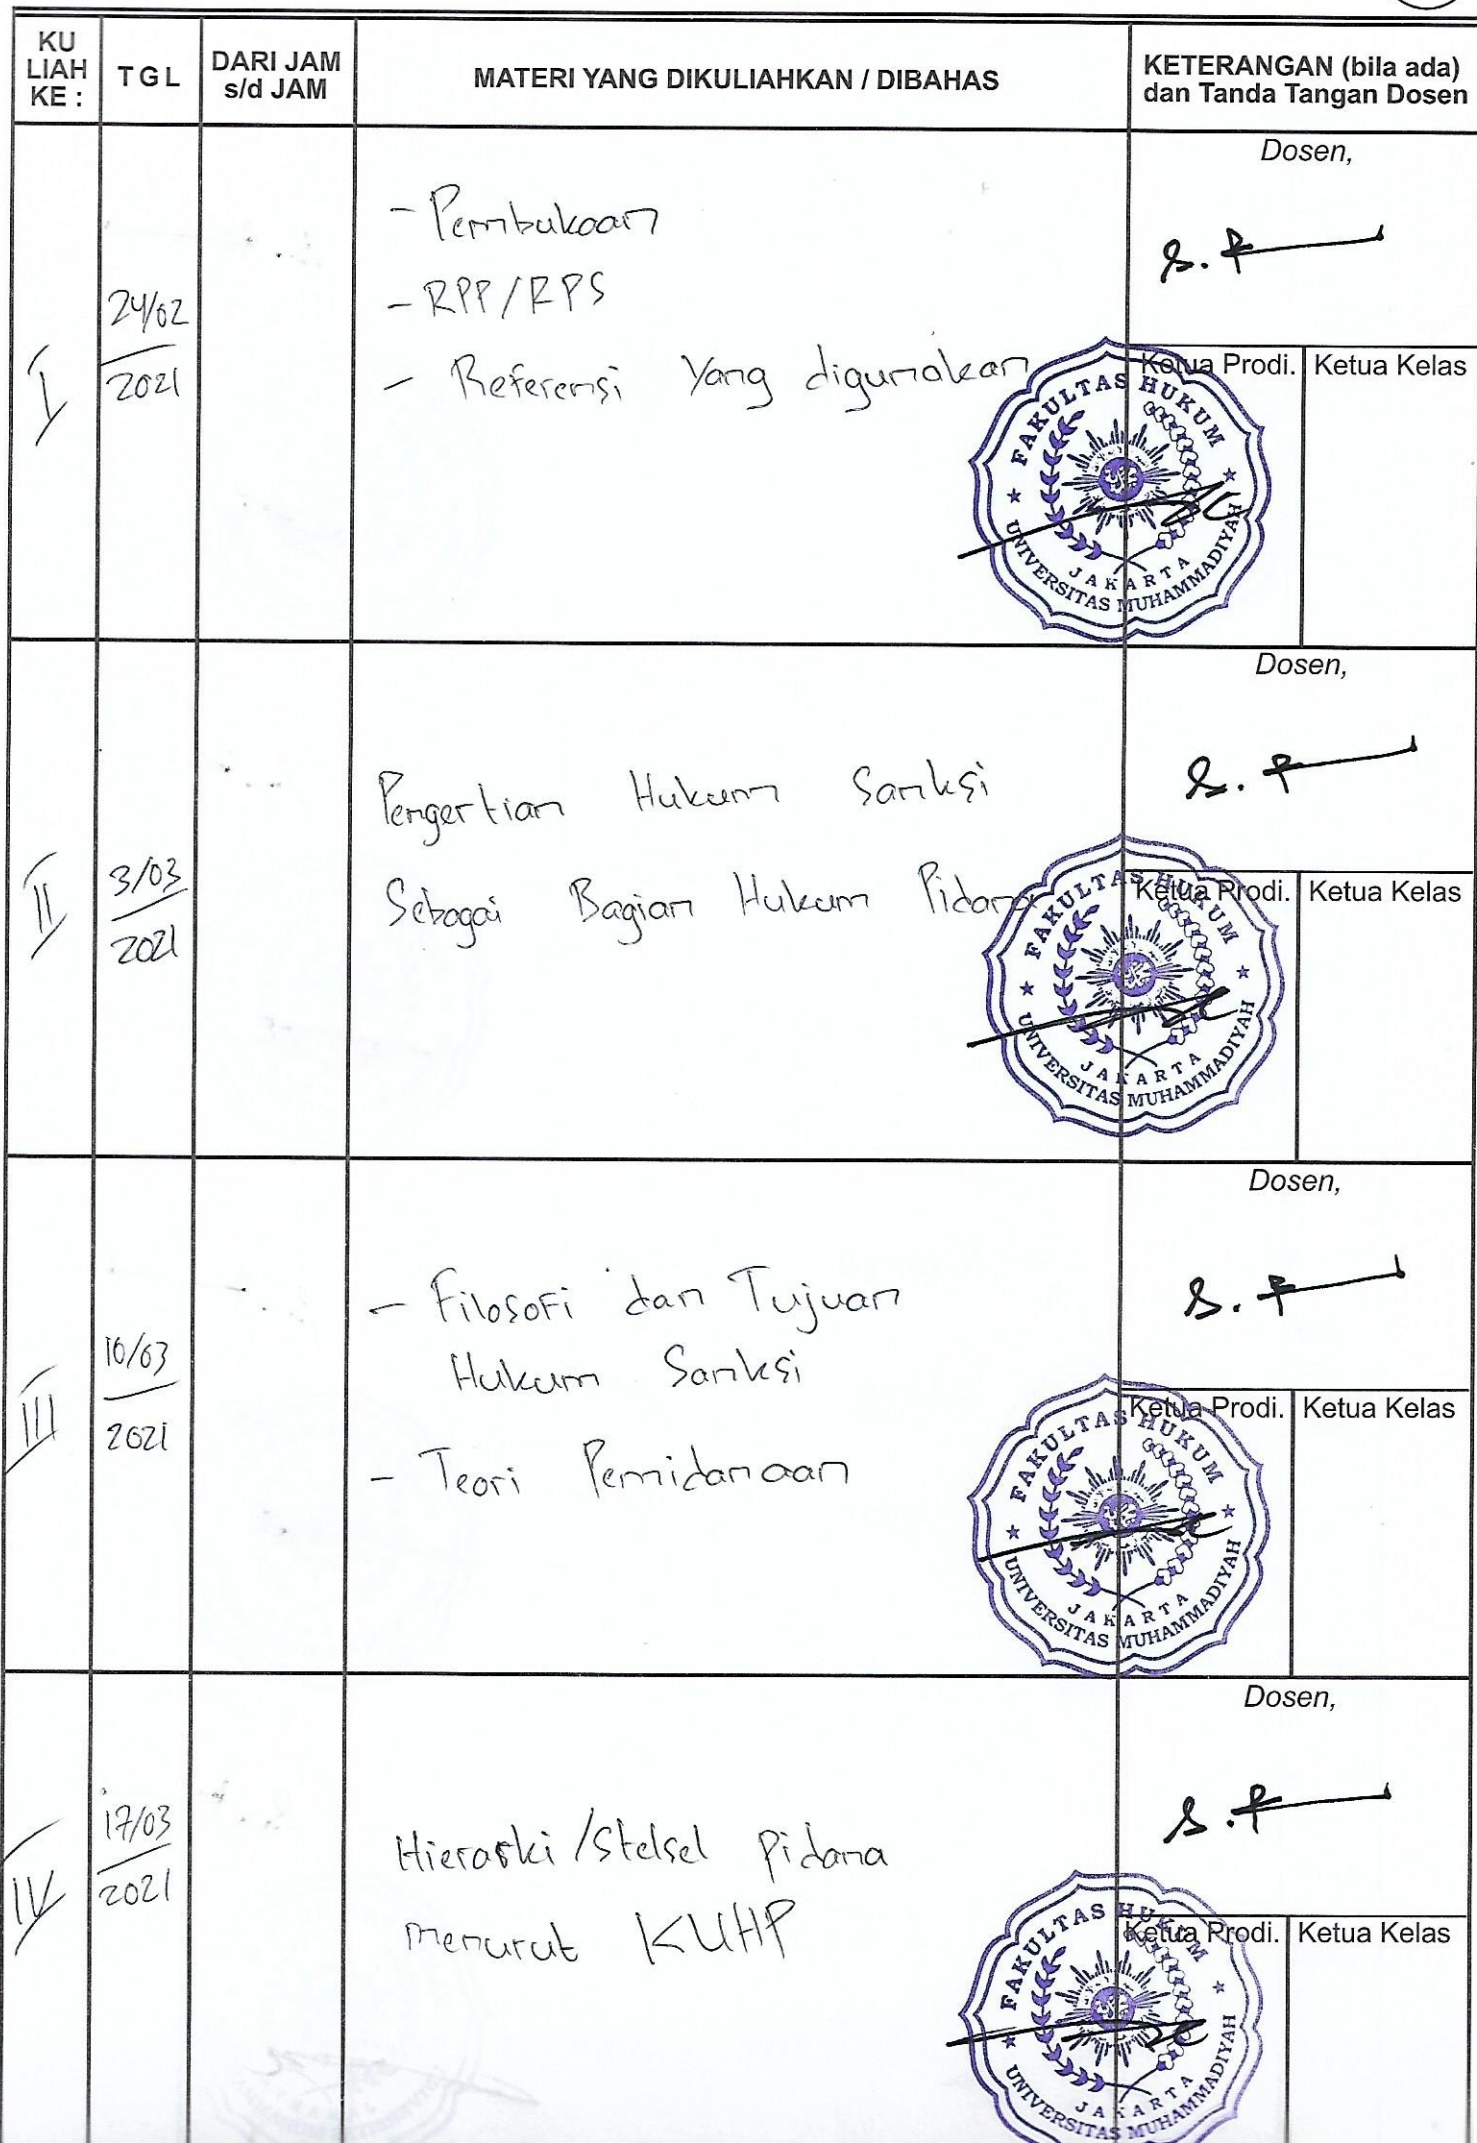 KU LIAH KE :
TGL
DARI JAM s/d JAM
MATERI YANG DIKULIAHKAN / DIBAHAS
KETERANGAN (bila ada) dan Tanda Tangan Dosen
I
24/02
2021
- Pembukaan
- RPP/RPS
- Referensi Yang digunakan
Dosen,
Ketua Prodi.
Ketua Kelas
FAKULTAS HUKUM
JAKARTA
UNIVERSITAS MUHAMMADIYAH
II
3/03
2021
Pengertian Hukum Sanksi
Sebagai Bagian Hukum Pidana
Dosen,
Ketua Prodi.
Ketua Kelas
FAKULTAS HUKUM
JAKARTA
UNIVERSITAS MUHAMMADIYAH
III
10/03
2021
- Filosofi dan Tujuan
Hukum Sanksi
- Teori Pemidanaan
Dosen,
Ketua Prodi.
Ketua Kelas
FAKULTAS HUKUM
JAKARTA
UNIVERSITAS MUHAMMADIYAH
IV
17/03
2021
Hieraski/Stelsel Pidana
menurut KUHP
Dosen,
Ketua Prodi.
Ketua Kelas
FAKULTAS HUKUM
JAKARTA
UNIVERSITAS MUHAMMADIYAH